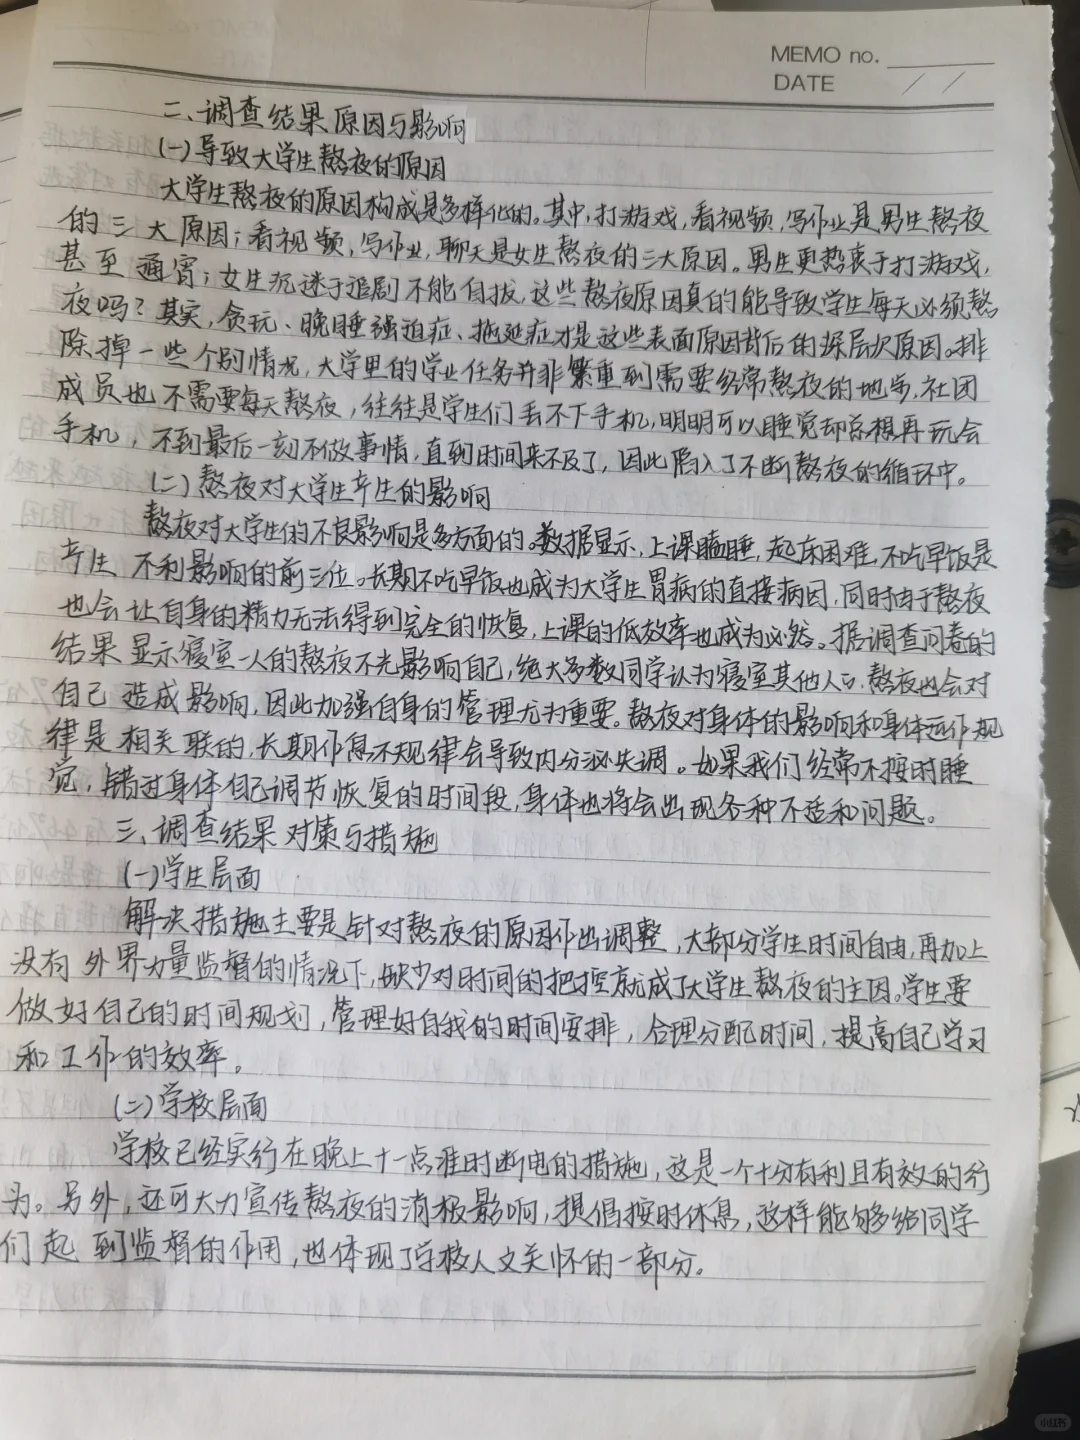 MEMO no.
DATE / /
二、调查结果原因与影响
(一)导致大学生熬夜的原因
大学生熬夜的原因构成是多样化的。其中,打游戏,看视频,写作业是男生熬夜
的三大原因;看视频,写作业,聊天是女生熬夜的三大原因。男生更热衷于打游戏,
甚至通宵;女生沉迷于追剧不能自拔,这些熬夜原因真的能导致学生每天必须熬
夜吗?其实,贪玩、晚睡强迫症、拖延症才是这些表面原因背后的深层次原因。排
除掉一些个别情况,大学里的学业任务并非繁重到需要经常熬夜的地步,社团
成员也不需要每天熬夜,往往是学生们丢不下手机,明明可以睡觉却总想再玩会
手机,不到最后一刻不做事情,直到时间来不及了,因此陷入了不断熬夜的循环中。
(二)熬夜对大学生产生的影响
熬夜对大学生的不良影响是多方面的。数据显示,上课瞌睡,起床困难,不吃早饭是
产生不利影响的前三位。长期不吃早饭也成为大学生胃病的直接病因,同时由于熬夜
也会让自身的精力无法得到完全的恢复,上课的低效率也成为必然。据调查问卷的
结果显示寝室一人的熬夜不光影响自己,绝大多数同学认为寝室其他人的熬夜也会对
自己造成影响,因此加强自身的管理尤为重要。熬夜对身体的影响和身体运作规
律是相关联的,长期作息不规律会导致内分泌失调。如果我们经常不按时睡
觉,错过身体自己调节恢复的时间段,身体也将会出现各种不适和问题。
三、调查结果对策与措施
(一)学生层面
解决措施主要是针对熬夜的原因作出调整,大部分学生时间自由,再加上
没有外界力量监督的情况下,缺少对时间的把控就成了大学生熬夜的主因。学生要
做好自己的时间规划,管理好自我的时间安排,合理分配时间,提高自己学习
和工作的效率。
(二)学校层面
学校已经实行在晚上十一点准时断电的措施,这是一个十分有利且有效的行
为。另外,还可大力宣传熬夜的消极影响,提倡按时休息,这样能够给同学
们起到监督的作用,也体现了学校人文关怀的一部分。
小红书